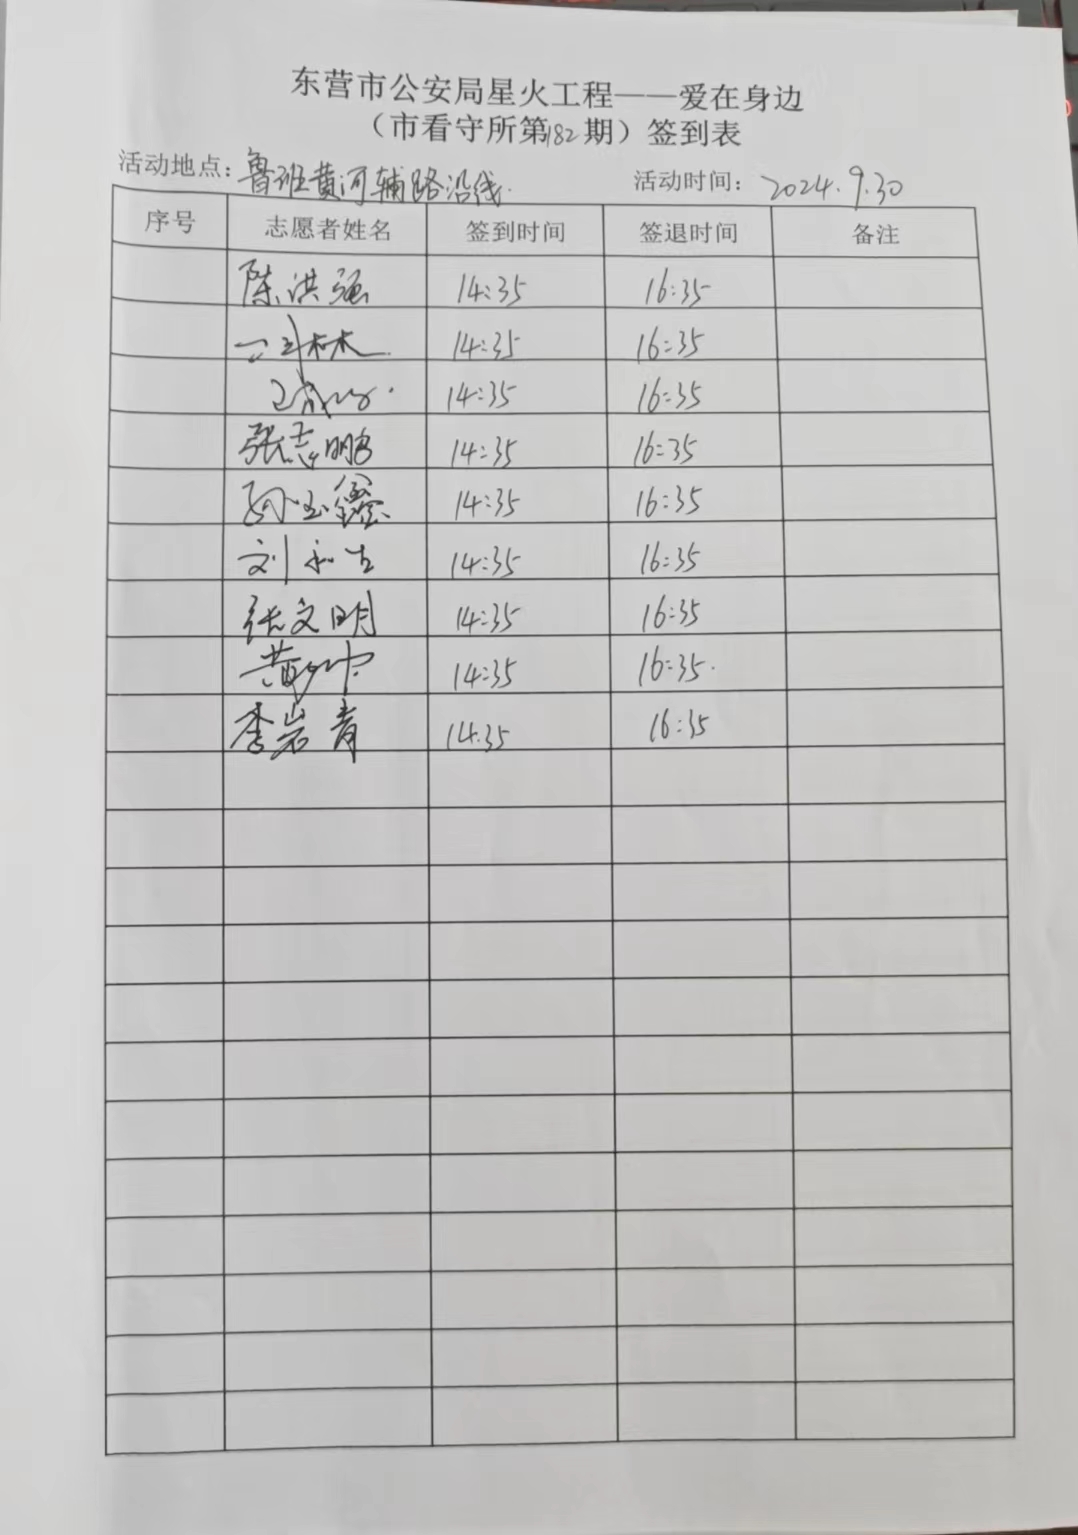 东营市公安局星火工程——爱在身边
（市看守所第182期）签到表
活动地点：鲁班黄河辅路沿线. 活动时间：2024.9.30
序号 志愿者姓名 签到时间 签退时间 备注
陈洪强 14:35 16:35
14:35 16:35
14:35 16:35
张志鹏 14:35 16:35
孙玉鑫 14:35 16:35
刘和生 14:35 16:35
张文明 14:35 16:35
黄 14:35 16:35.
李岩青 14.35 16:35